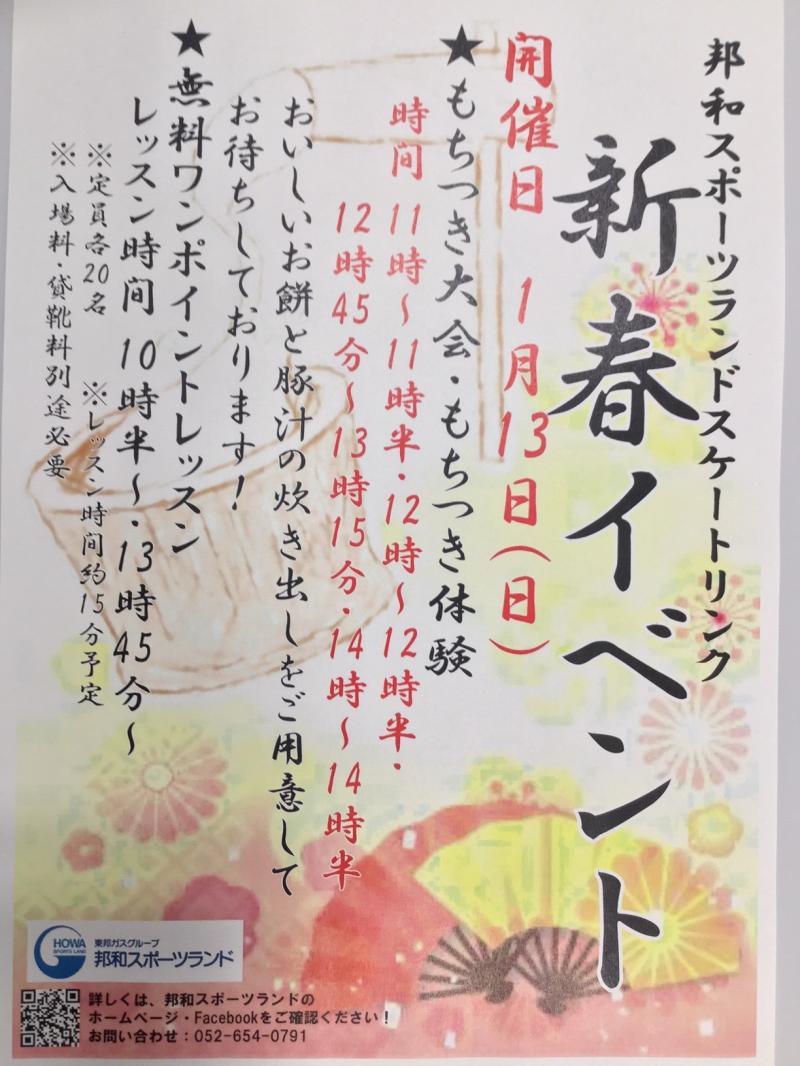 邦和スポーツランドスケートリンク
新春イベント
開催日 1月13日(日)
★もちつき大会・もちつき体験
時間 11時~11時半・12時~12時半・
12時45分~13時15分・14時~14時半
おいしいお餅と豚汁の炊き出しをご用意して
お待ちしております!
★無料ワンポイントレッスン
レッスン時間 10時半~・13時45分~
※定員各20名 ※レッスン時間約15分予定
※入場料・貸靴料別途必要
HOWA
SPORTS LAND
東邦ガスグループ
邦和スポーツランド
詳しくは、邦和スポーツランドの
ホームページ・Facebookをご確認ください!
お問い合わせ:052-654-0791